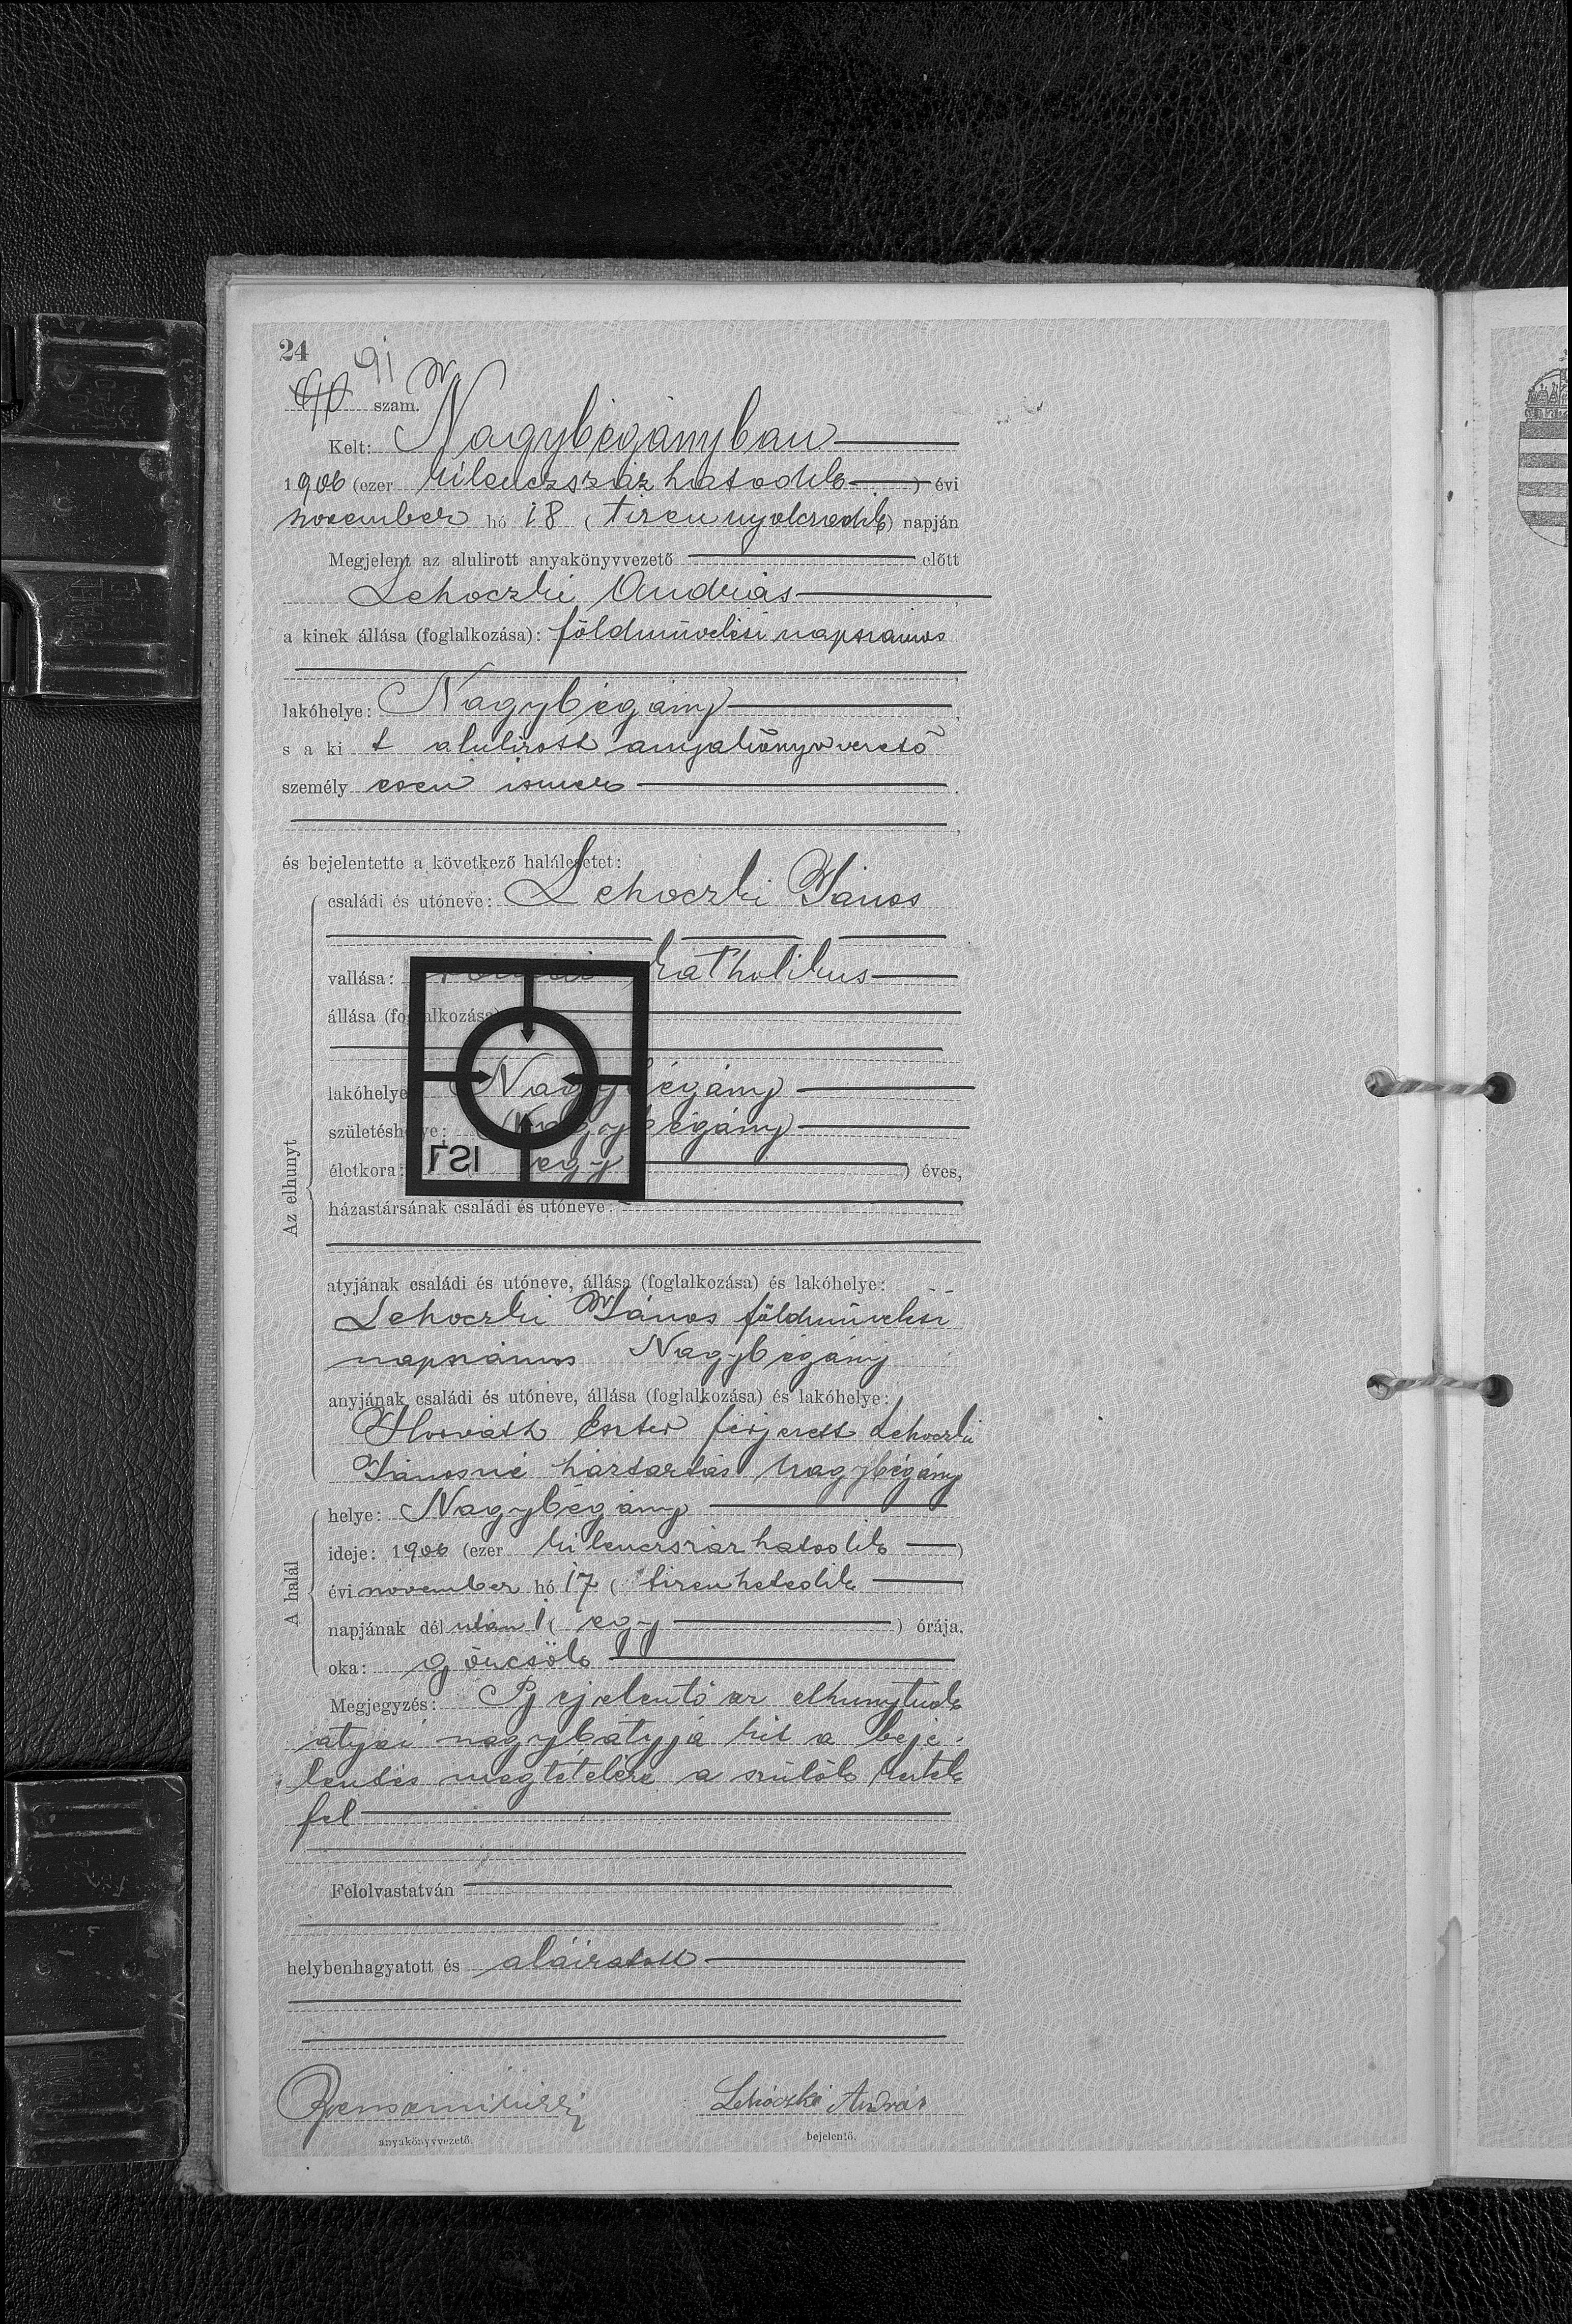 24
90 91
szám.
Kelt: Nagybégányban
1906 (ezer kilenczszáz hatodik) évi
november hó 18 (tizennyolczadik) napján
Megjelent az alulirott anyakönyvvezető előtt
Lehoczki András
a kinek állása (foglalkozása): földmüvelési napszámos
lakóhelye: Nagybégány
s a ki t alulirott anyakönyvvezető
személy esen ismer
és bejelentette a következő halálesetet:
Az elhunyt
családi és utóneve: Lehoczki János
vallása: római katholikus
állása (foglalkozása)
lakóhelye: Nagybégány
születéshelye: Nagybégány
életkora: ( egy ) éves,
LSI
házastársának családi és utóneve:
atyjának családi és utóneve, állása (foglalkozása) és lakóhelye:
Lehoczki János földmüvelési
napszámos Nagybégány
anyjának családi és utóneve, állása (foglalkozása) és lakóhelye:
Horváth Eszter férjezett Lehoczki
Jánosné háztartás Nagybégány
A halál
helye: Nagybégány
ideje: 1906 (ezer kilenczszáz hatodik )
évi november hó 17 ( tizenhetedik
napjának dél után 1 ( egy ) órája.
oka: göresök
Megjegyzés: Bejelentő az elhunytnak
atyai nagybátyja kit a beje-
lentés megtételére a szülők kértek
fel
Felolvastatván
helybenhagyatott és aláiratott
anyakönyvvezető.
Lehóczki András
bejelentő.